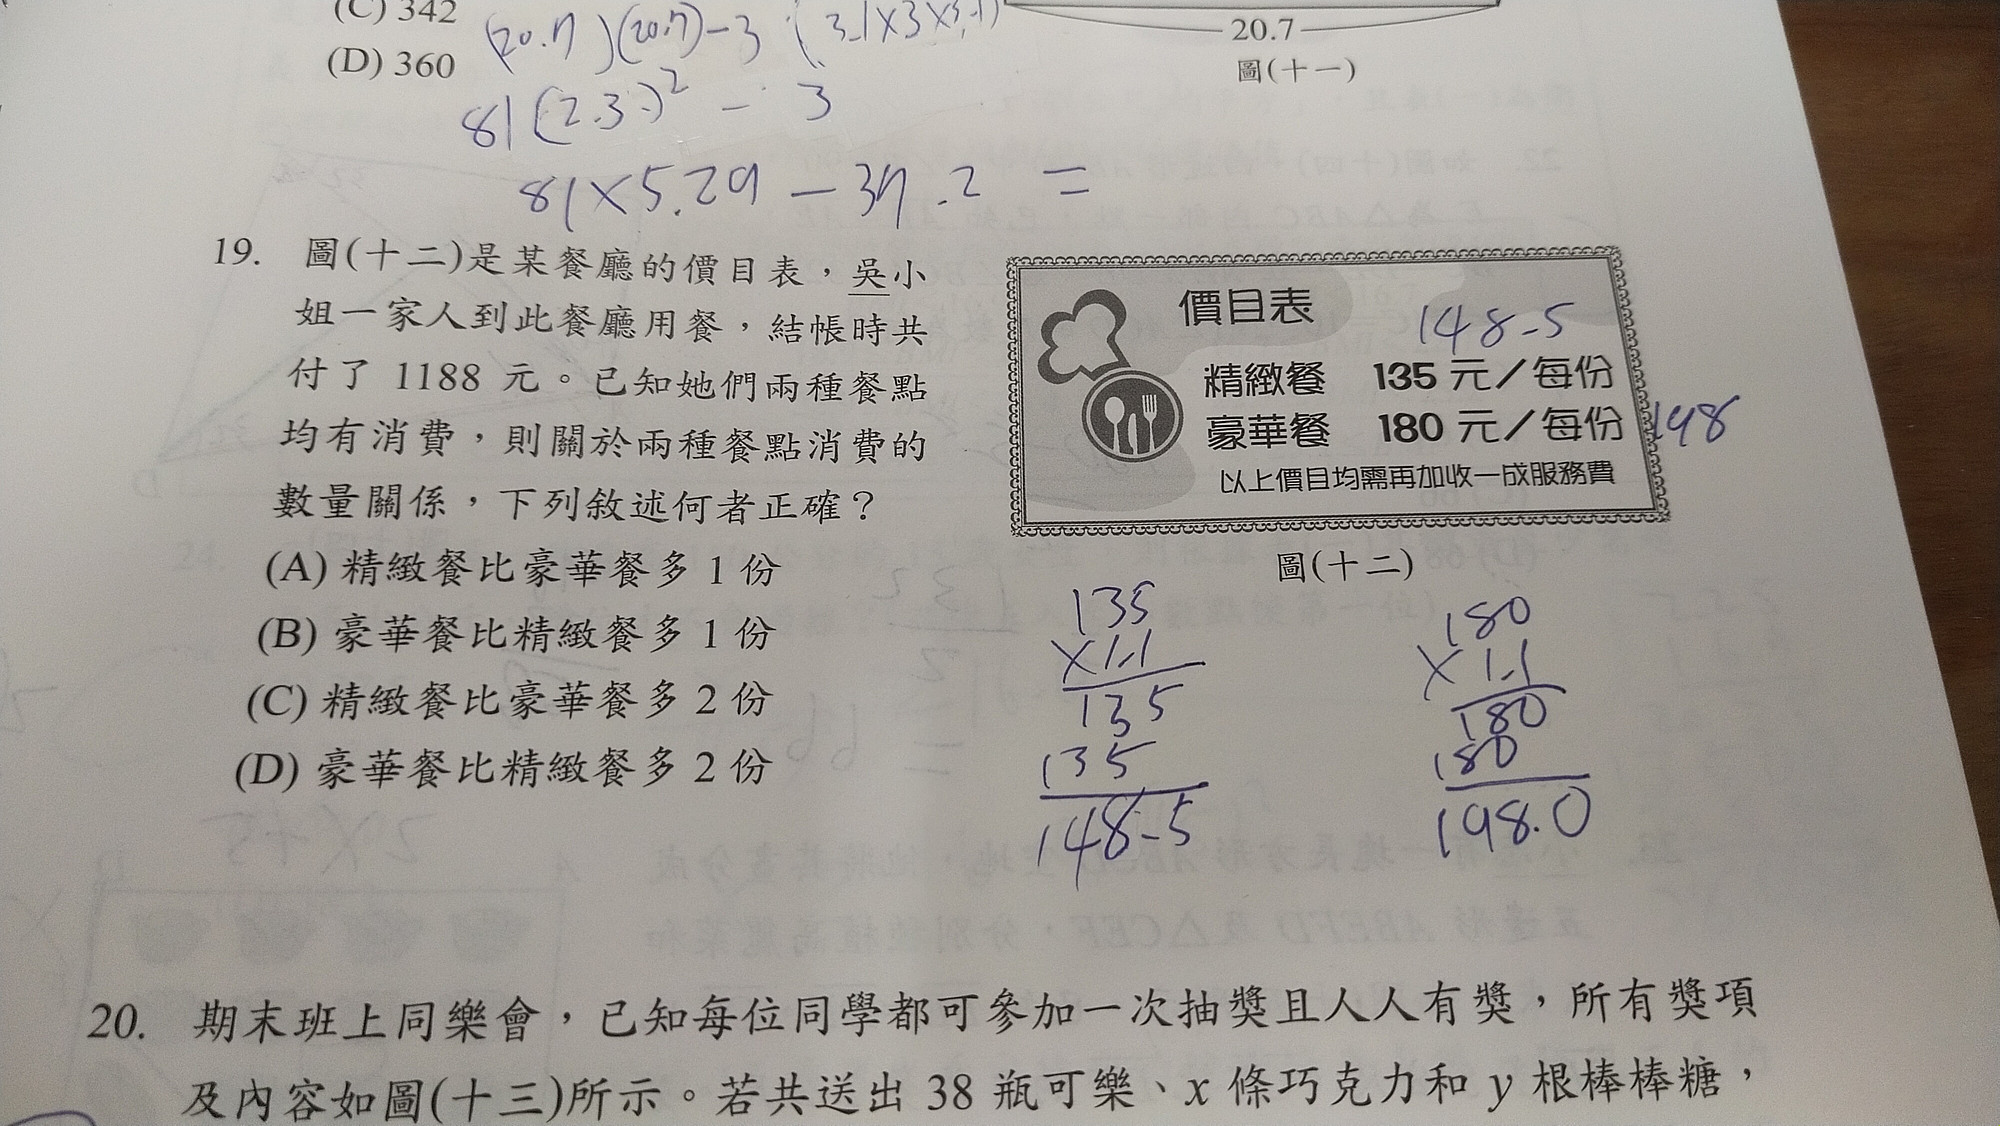 (C) 342
(D) 360
(20.7)(20.7)-3(3.1×3×3.1)
81(2.3)² - 3
81×5.29-37.2 =
20.7
圖(十一)
19. 圖(十二)是某餐廳的價目表，吳小
姐一家人到此餐廳用餐，結帳時共
付了 1188 元。已知她們兩種餐點
均有消費，則關於兩種餐點消費的
數量關係，下列敘述何者正確？
(A) 精緻餐比豪華餐多 1 份
(B) 豪華餐比精緻餐多 1 份
(C) 精緻餐比豪華餐多 2 份
(D) 豪華餐比精緻餐多 2 份
價目表
148.5
精緻餐 135 元／每份
豪華餐 180 元／每份
198
以上價目均需再加收一成服務費
圖(十二)
135
×1.1
135
135
148.5
180
×1.1
180
180
198.0
20. 期末班上同樂會，已知每位同學都可參加一次抽獎且人人有獎，所有獎項
及內容如圖(十三)所示。若共送出 38 瓶可樂、x 條巧克力和 y 根棒棒糖，